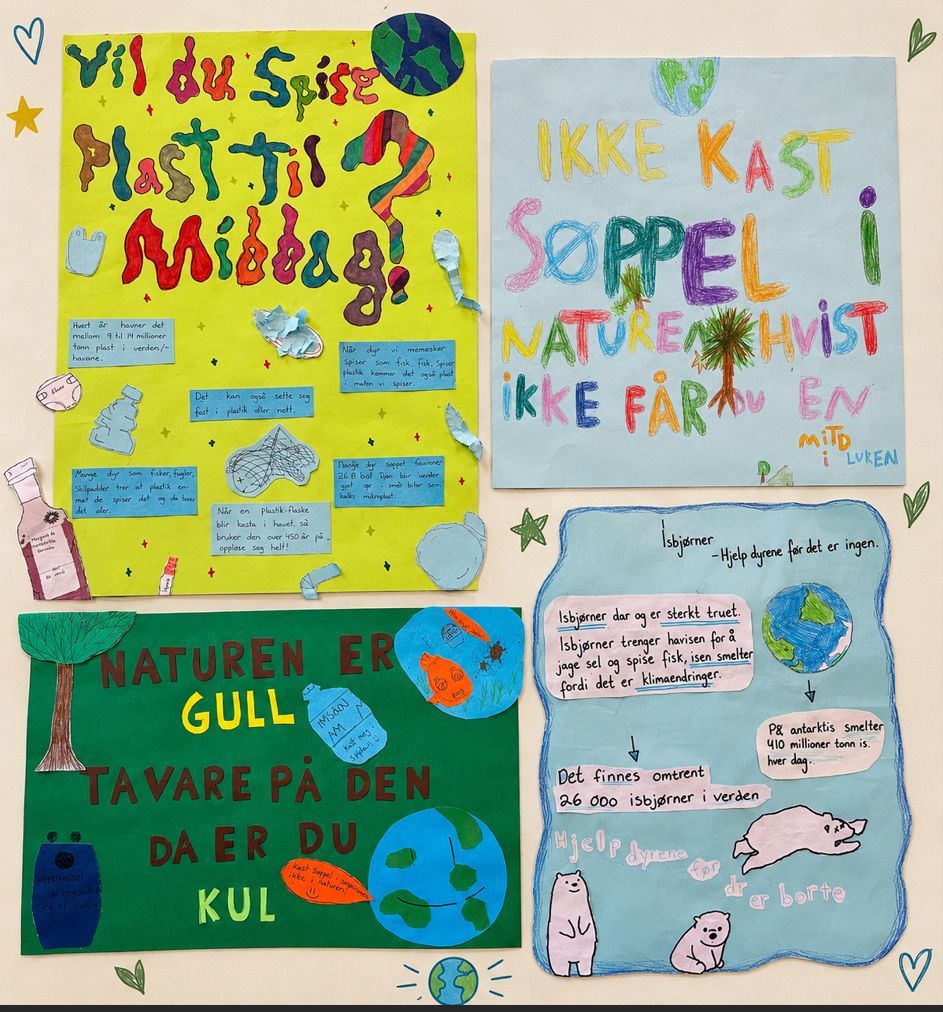 Vil du Spise
Plast til
Middag?
Hvert år havner det
mellom 9 til 14 millioner
tonn plast i verden/-
havane.
Når dyr vi memesker
spiser som fisk, fisk, spiser
plastik kommer det også plast
i maten vi spiser.
Det kan også sette seg
fast i plastik eller nett.
Mange dyr som fisker, fugler,
Skilpadder trer at plastik em
mat de spiser det og da
det øler.
Når en plastik-flaske
blir kasta i havet så
bruker den over 450 år på
oppløse seg helt!
IKKE KAST
SØPPEL i
NATUREN HVIST
iKKE FÅR DU EN
MiTD
i LUREN
NATUREN ER
GULL
Kast meg
TA VARE PÅ DEN
DA ER DU
KUL
Kast Søppel i
ikke i naturen!
Isbjørner
-Hjelp dyrene før det er ingen.
Isbjørner dar og er sterkt truet.
Isbjørner trenger havisen for å
jage sel og spise fisk, isen smelter
fordi det er klimaendringer.
På antarktis smelter
410 millioner tonn is.
hver dag.
Det finnes omtrent
26 000 isbjørner i verden
Hjelp dyrene før
dr er borte